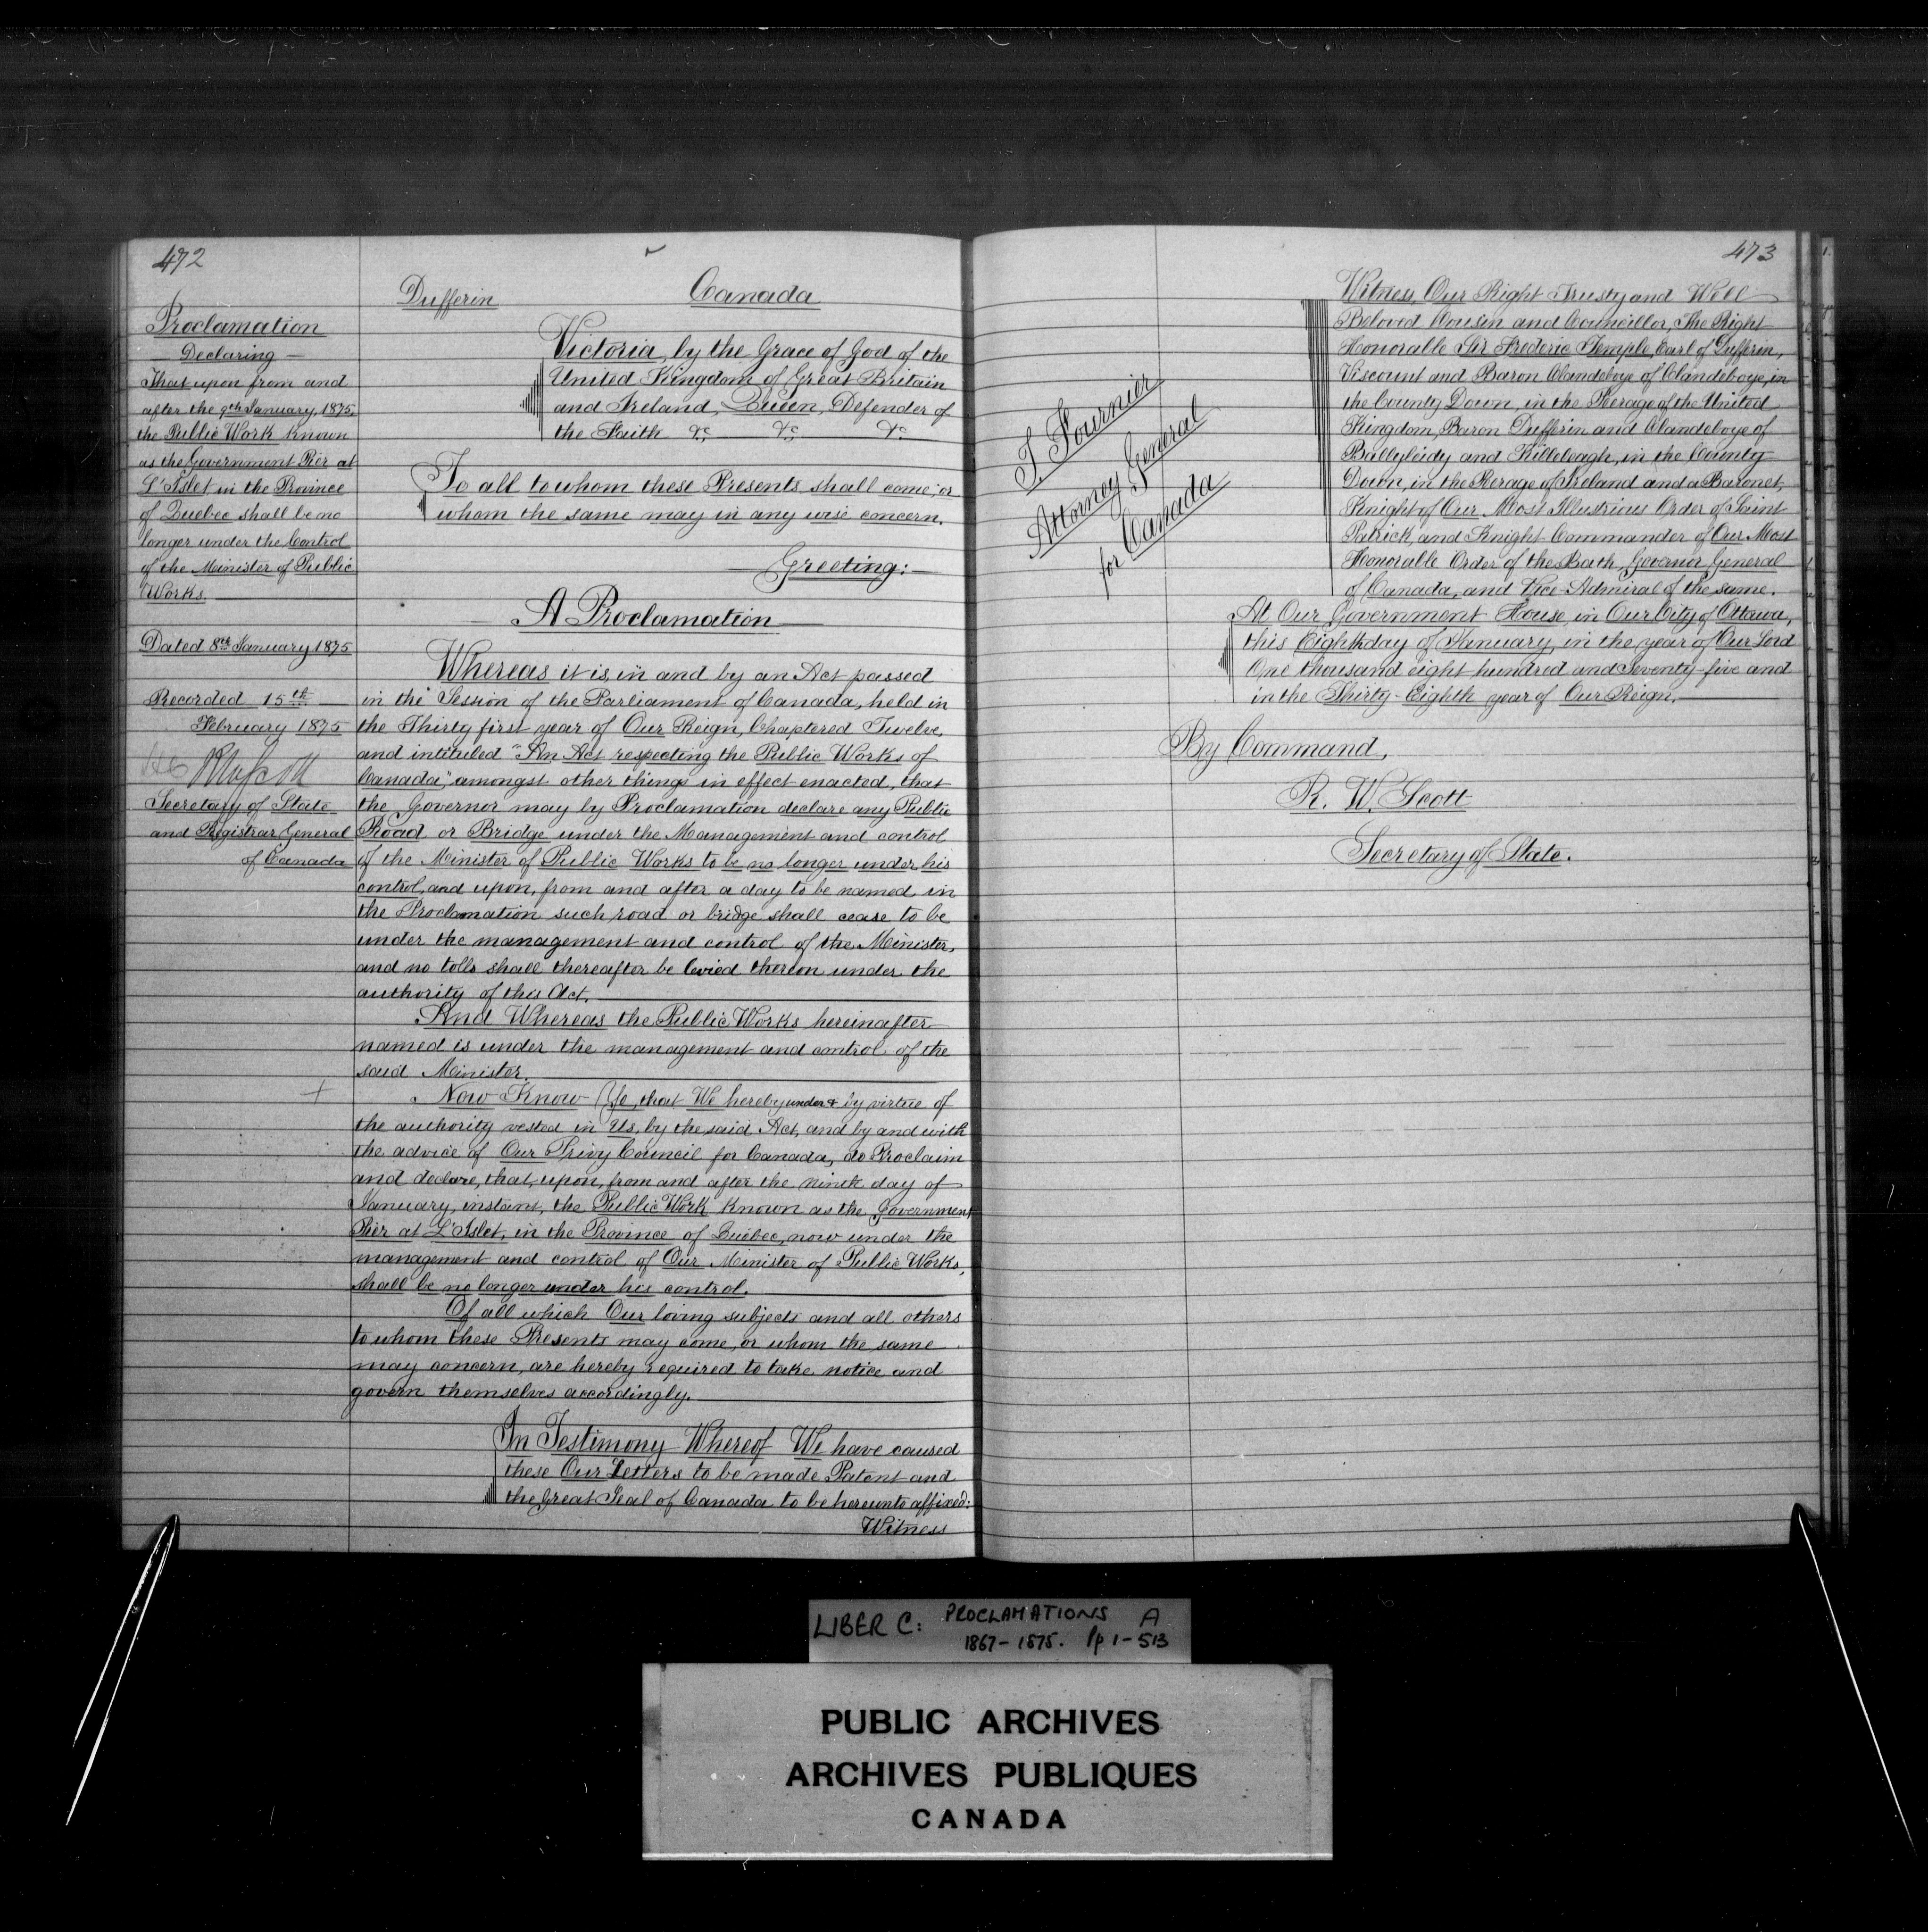 472
Proclamation
Declaring
That upon from and
after the 9th January, 1875,
the Public Work known
as the Government Pier at
L'Islet in the Province
of Quebec shall be no
longer under the Control
of the Minister of Public
Works.
Dated 8th January 1875
Recorded 15th
February 1875
RWScott
Secretary of State
and Registrar General
of Canada
Dufferin Canada
Victoria, by the Grace of God of the
United Kingdom of Great Britain
and Ireland, Queen, Defender of
the Faith &c &c &c
To all to whom these Presents shall come, or
whom the same may in any wise concern.
Greeting:
A Proclamation
Whereas it is, in and by an Act passed
in the Session of the Parliament of Canada, held in
the Thirty first year of Our Reign, Chaptered Twelve,
and intituled "An Act respecting the Public Works of
Canada," amongst other things in effect enacted, that
the Governor may by Proclamation declare any Public
Road or Bridge under the Management and control
of the Minister of Public Works to be no longer under his
control, and upon, from and after a day to be named in
the Proclamation such road or bridge shall cease to be
under the management and control of the Minister,
and no tolls shall thereafter be levied thereon under the
authority of this Act.
And Whereas the Public Works hereinafter
named is under the management and control of the
said Minister.
Now Know Ye, that We hereby under & by virtue of
the authority vested in Us, by the said Act, and by and with
the advice of Our Privy Council for Canada, do Proclaim
and declare, that, upon, from and after the ninth day of
January, instant, the Public Work known as the Government
Pier at L'Islet, in the Province of Quebec, now under the
management and control of Our Minister of Public Works,
shall be no longer under his control.
Of all which Our loving subjects and all others
to whom these Presents may come, or whom the same
may concern, are hereby required to take notice and
govern themselves accordingly.
In Testimony Whereof We have caused
these Our Letters to be made Patent and
the Great Seal of Canada to be hereunto affixed:
Witness
473
Witness, Our Right Trusty and Well
Beloved Cousin and Councillor, The Right
Honorable Sir Frederic Temple, Earl of Dufferin,
Viscount and Baron Clandeboye of Clandeboye, in
the County Down, in the Peerage of the United
Kingdom, Baron Dufferin and Clandeboye of
Ballyleidy and Killeleagh, in the County
Down, in the Peerage of Ireland and a Baronet,
Knight of Our Most Illustrious Order of Saint
Patrick, and Knight Commander of Our Most
Honorable Order of the Bath, Govenor General
of Canada, and Vice Admiral of the same.
At Our Government House, in Our City of Ottawa,
this Eighth day of January, in the year of Our Lord
One thousand eight hundred and Seventy-five and
in the Thirty-Eighth year of Our Reign.
T. Fournier
Attorney General
for Canada
By Command,
R. W. Scott
Secretary of State.
LIBER C: PROCLAMATIONS A
1867-1875. pp 1-513
PUBLIC ARCHIVES
ARCHIVES PUBLIQUES
CANADA